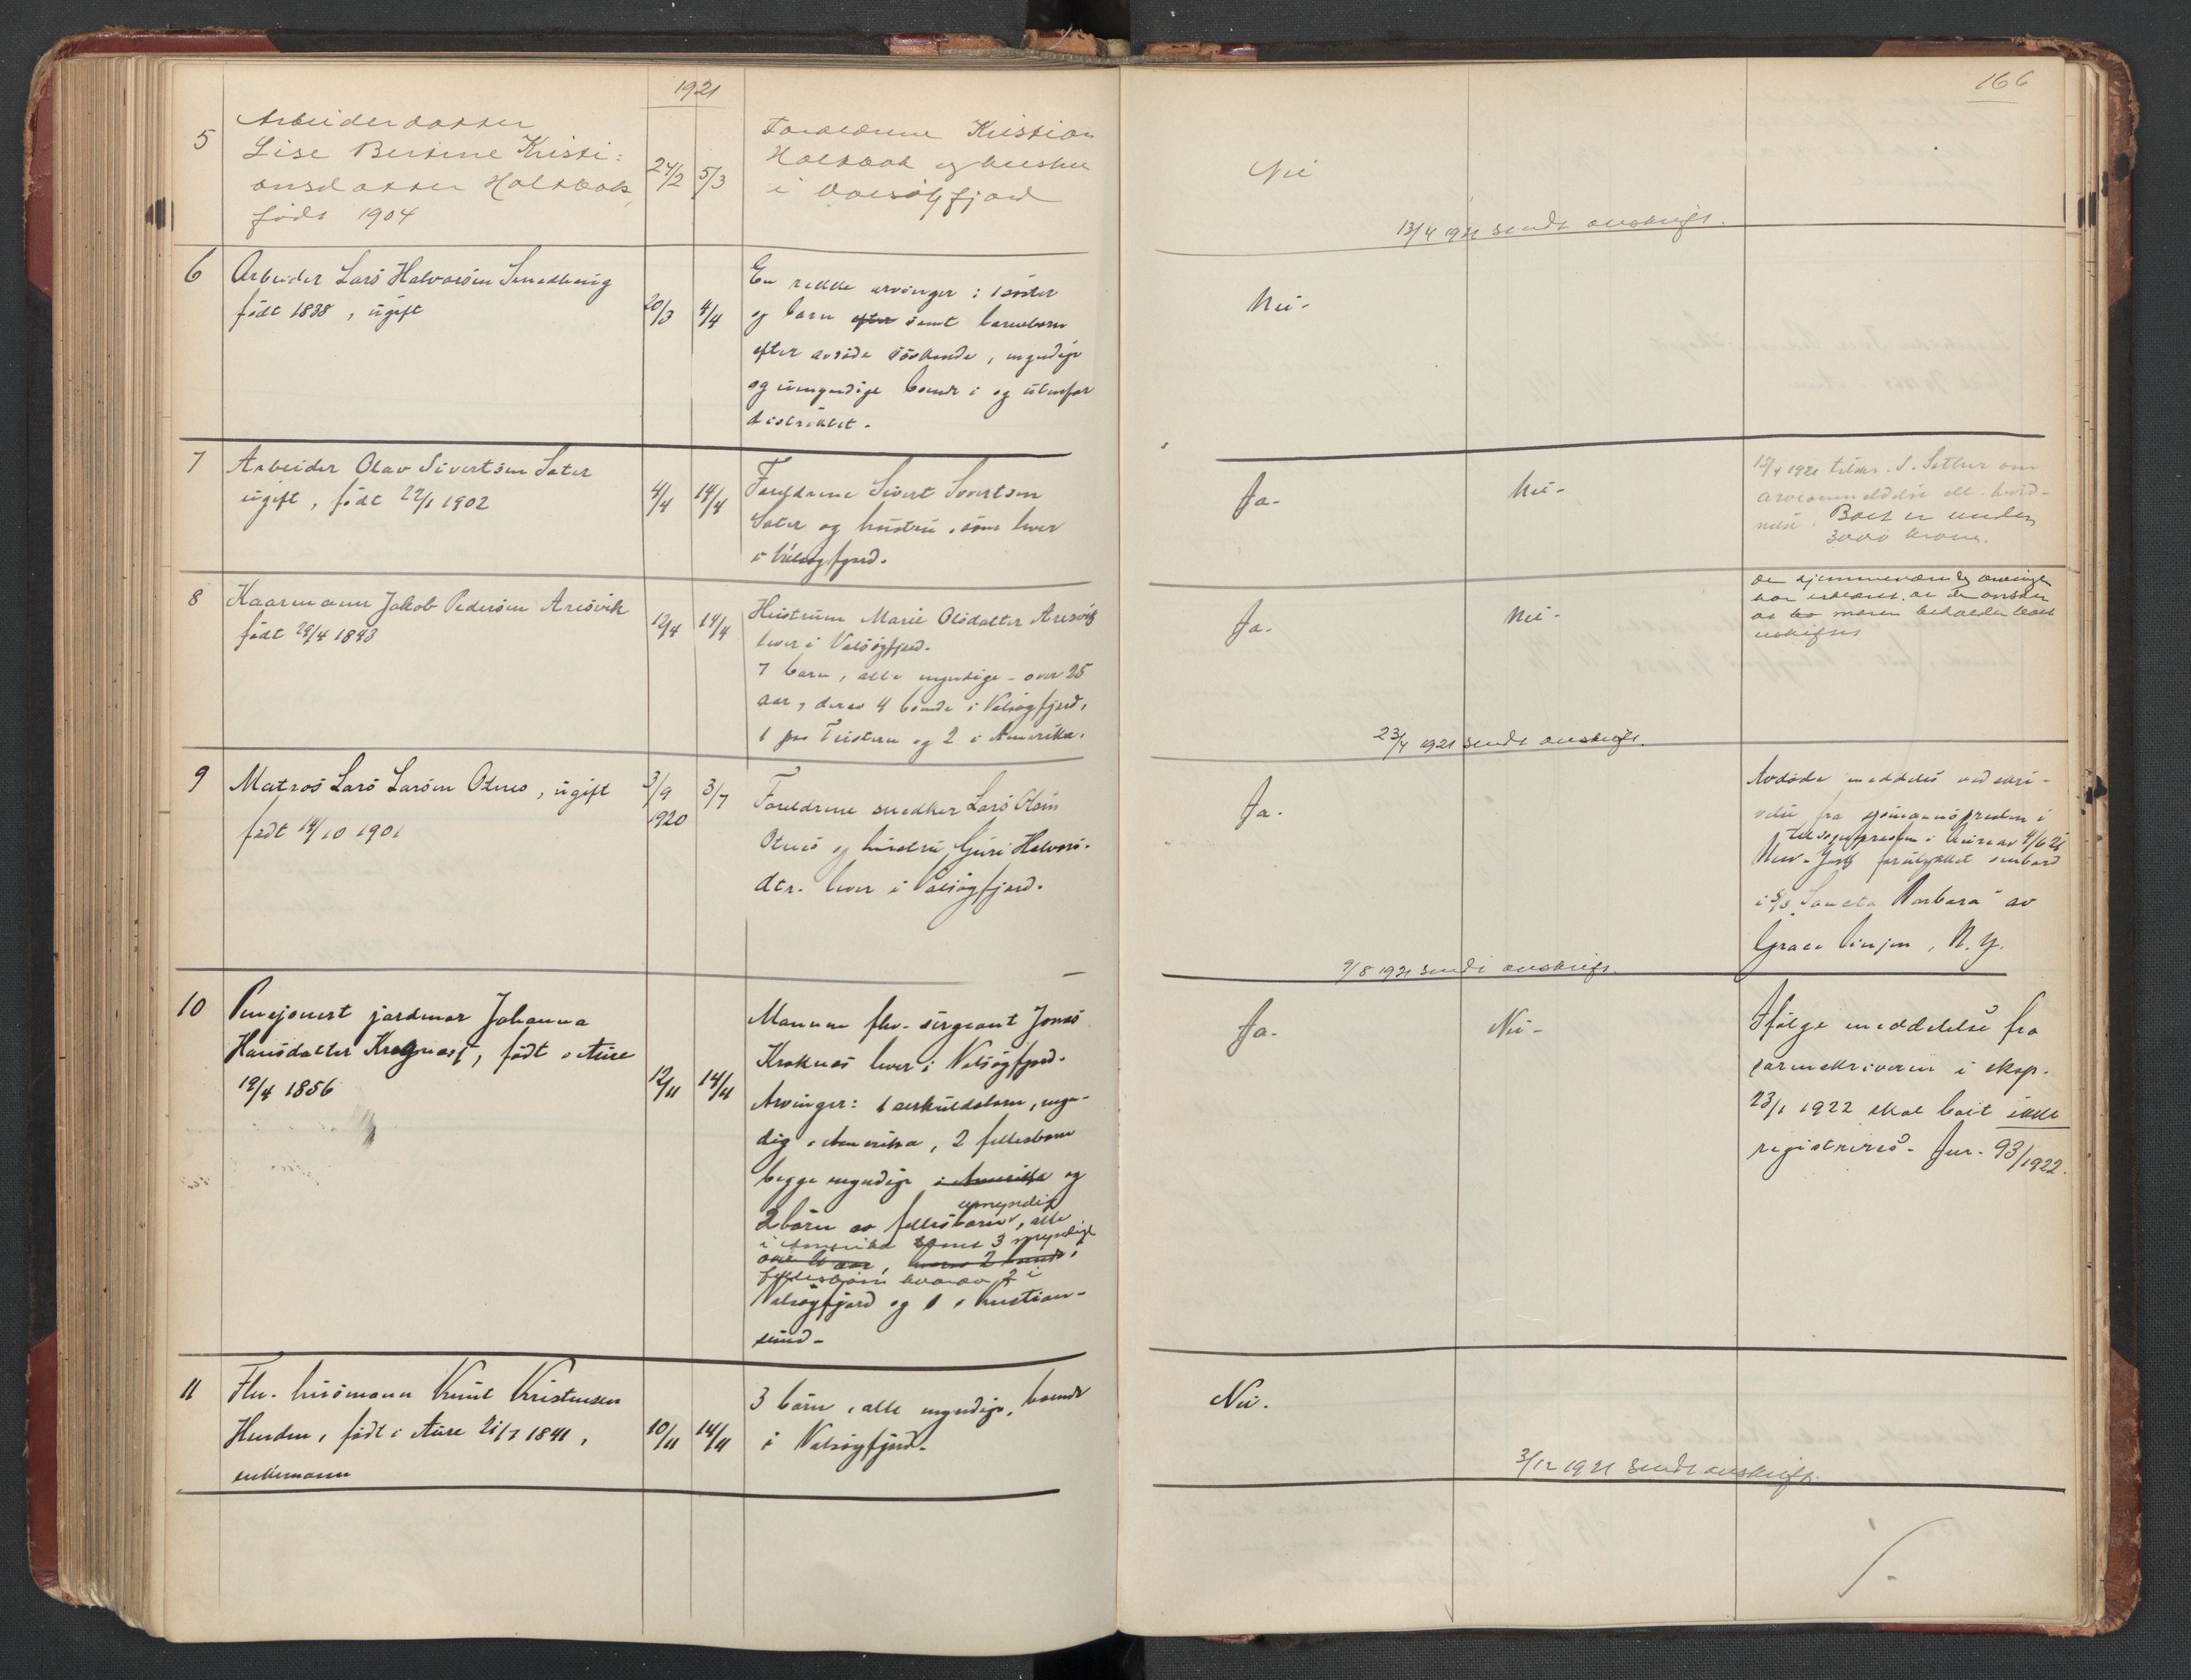 1921
166
5
Arbeiderdatter
Lise Bertine Kristi-
ansdatter Holtbak,
født 1904
24/2
5/3
Forældrene Kristian
Holtbak og hustru
i Valsøyfjord
Nei
13/4 1921 sendt avskrift.
6
Arbeider Lars Halvorsen
født 1838, ugift
20/3
4/4
En rekke arvinger: 1 søster
og barn efter samt barnebarn
efter avdøde søskende, myndige
og umyndige boende i og utenfor
distriktet.
Nei.
7
Arbeider Olav Sivertsen Sæter
ugift, født 22/1 1902
4/4
14/4
Foreldrene Sivert Sivertsen
Sæter og hustru, som lever
i Valsøyfjord.
Ja.
Nei.
15/4 1921 tilskr. S. Sæther om
arveanmeldelse ell.
Boet er under
3000 kroner.
8
Kaarmann Jakob Pedersen Aresvik
født 29/4 1843
12/4
14/4
Hustruen Marie Olsdatter Aresvik
lever i Valsøyfjord.
7 barn, alle myndige - over 25
aar, derav 4 boende i Valsøyfjord,
1 paa Tustern og 2 i Amerika.
Ja.
Nei.
De hjemmeværende arvinger
har erklæret at de ønsker
at moren beholder boet
uskiftet
23/4 1921 sendt avskrift.
9
Matros Lars Larsen Otnes, ugift
født 14/10 1901
3/9
1920
3/7
Foreldrene snedker Lars Olsen
Otnes og hustru Guri Halvors-
dtr. lever i Valsøyfjord.
Ja.
Avdøde meddeles ved skri-
velse fra sjømannspresten i
til sognepresten i Aure av 4/6 21
New-York forulykket ombord
i S/S "Sancta Barbara" av
Grace Linjen, N.Y.
9/8 1921 sendt avskrift.
10
Pensjonert jordmor Johanna
Hansdatter Kroknes, født i Aure
19/4 1856
12/11
14/11
Mannen fhv. sergeant Jonas
Kroknes lever i Valsøyfjord.
Arvinger: 1 særkuldsbarn, myn-
dig i Amerika, 2 fellesbarn
begge myndige i Amerika og
umyndige
2 barn av fellesbarn, alle
i Amerika samt 3 myndige
fellesbarn hvorav 2 i
Valsøyfjord og 1 i Kristian-
sund.
Ja.
Nei.
Ifølge meddelelse fra
sorenskriveren i skap.
23/1 1922 skal boet ikke
registreres. Jur. 93/1922.
11
Fhv. husmann Knut Kristensen
Henden, født i Aure 21/7 1841,
enkemann
10/11
14/11
3 barn, alle myndige, boende
i Valsøyfjord.
Nei.
3/12 1921 sendt avskrift.